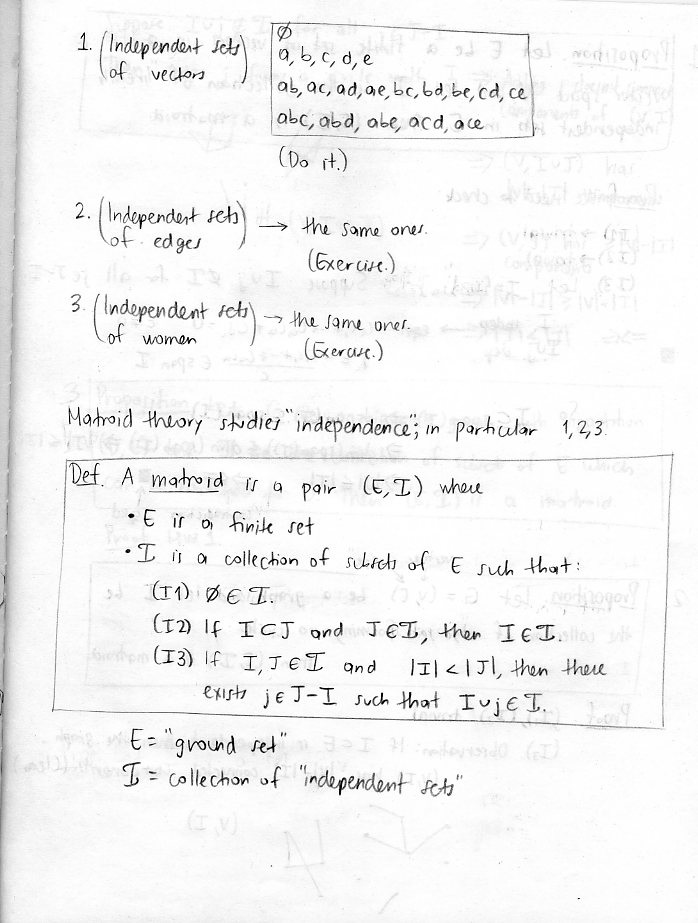 1. (Independent sets of vectors)
∅
a, b, c, d, e
ab, ac, ad, ae, bc, bd, be, cd, ce
abc, abd, abe, acd, ace
(Do it.)
2. (Independent sets of edges) → the same ones.
(Exercise.)
3. (Independent sets of women) → the same ones.
(Exercise.)
Matroid theory studies "independence"; in particular 1,2,3.
Def. A matroid is a pair (E, I) where
• E is a finite set
• I is a collection of subsets of E such that:
(I1) ∅ ∈ I.
(I2) If I ⊂ J and J ∈ I, then I ∈ I.
(I3) If I, J ∈ I and |I| < |J|, then there
exists j ∈ J-I such that I ∪ j ∈ I.
E = "ground set"
I = collection of "independent sets"